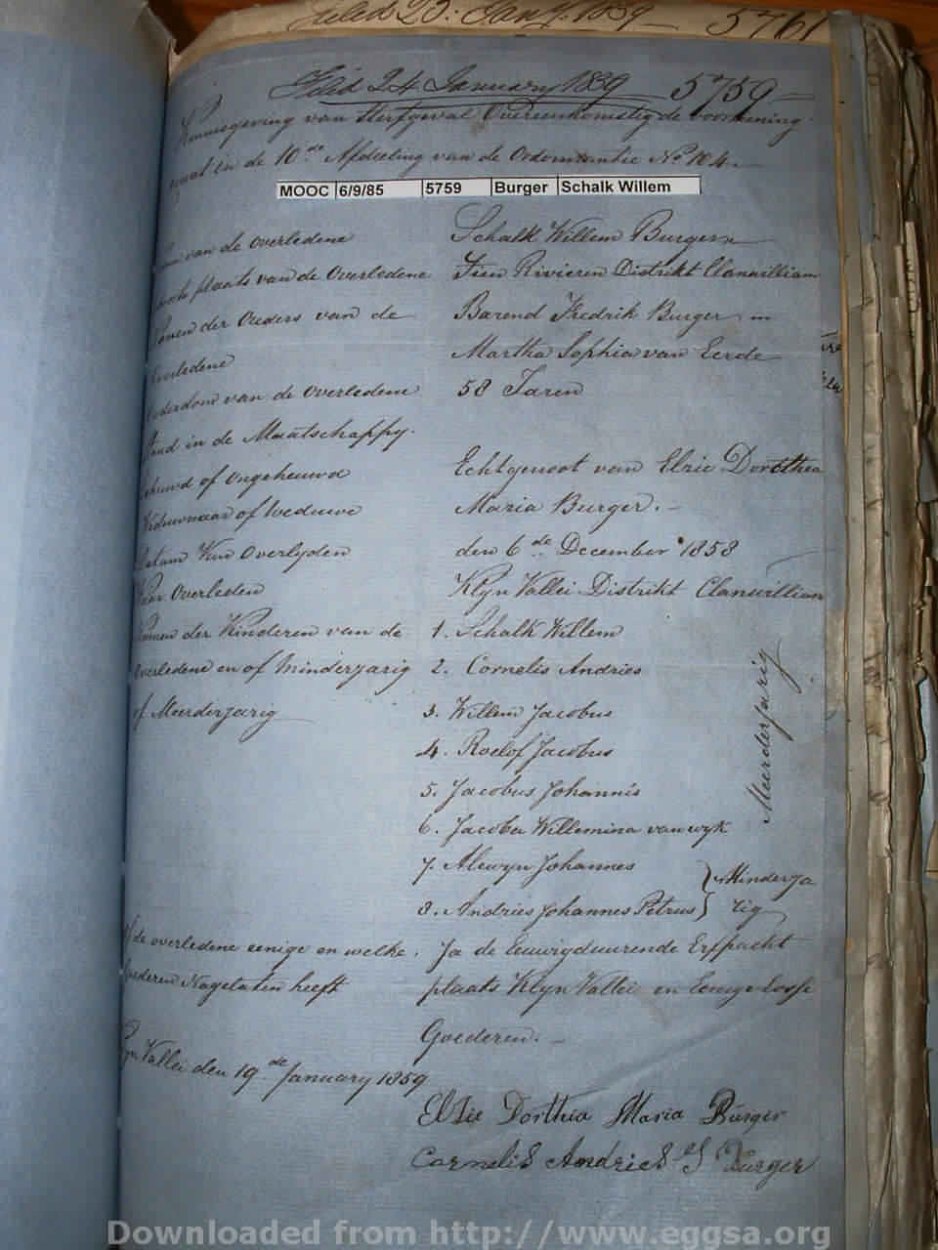 Filed 25: Jany. 1859 5761
Filed 24 January 1859 5759
Kennisgeving van Sterfgeval Overeenkomstig de voorziening
in de 10de Afdeeling van de Ordonnantie No 104.
MOOC 6/9/85 5759 Burger Schalk Willem
van de Overledene Schalk Willem Burger
plaats van de Overledene Distrikt Clanwilliam
Namen der Ouders van de Barend Fredrik Burger en
Overledene Martha Sophia van Eerde
Ouderdom van de Overledene 58 Jaren
Stand in de Maatschappy.
Gehuwd of Ongehuwd Echtgenoot van Elzie Dorothea
Weduwnaar of Weduwe Maria Burger. -
Datum Van Overlyden den 6de December 1858
Waar Overleden Klyn Vallei Distrikt Clanwilliam
Namen der Kinderen van de 1. Schalk Willem
Overledene en of Minderjarig 2. Cornelis Andries
of Meerderjarig 3. Willem Jacobus
4. Roelof Jacobus
5. Jacobus Johannis
6. Jacoba Willemina van wyk
Meerderjarig
7. Alewyn Johannes
8. Andries Johannes Petrus } Minderja
rig
Of de overledene eenige en welke Ja de Eeuwigduurende Erfpacht
Goederen Nagelaten heeft plaats Klyn Vallei en Eenige Losse
Goederen. -
Klyn Vallei den 19de January 1859
Elzie Dorthia Maria Burger
Cornelis Andries S Burger
Downloaded from http://www.eggsa.org